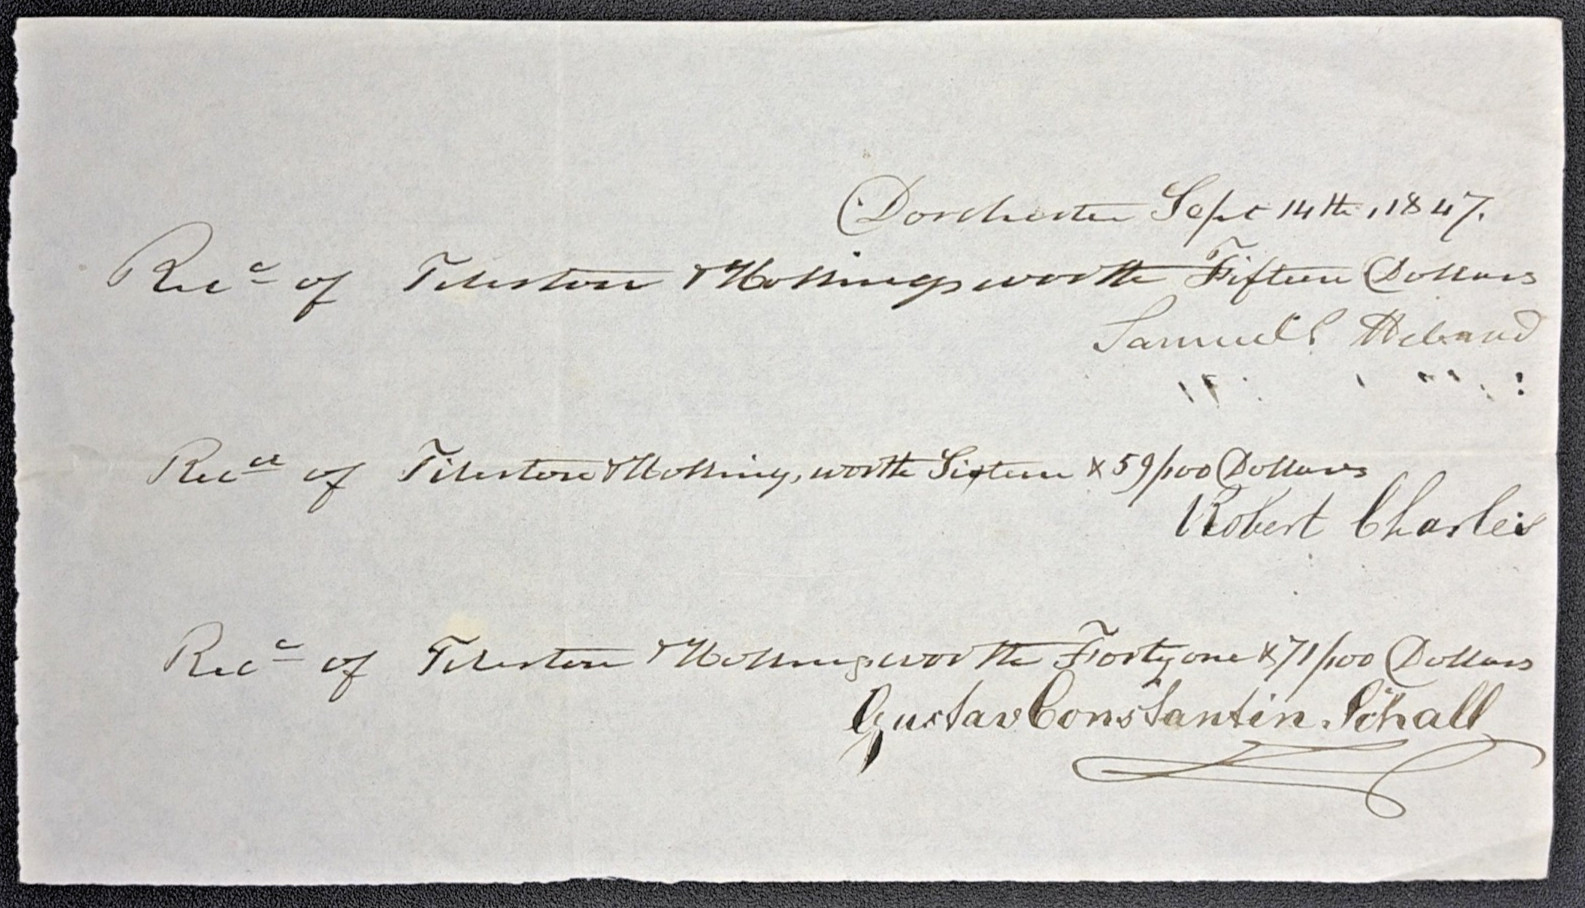 Dorchester Sept 14th, 1847.
Recd of Tileston & Hollingsworth Fifteen Dollars
Samuel
Recd of Tileston & Hollingsworth Sixteen & 59/100 Dollars
Robert Charles
Recd of Tileston & Hollingsworth Forty one & 71/100 Dollars
Gustav Constantin Schall